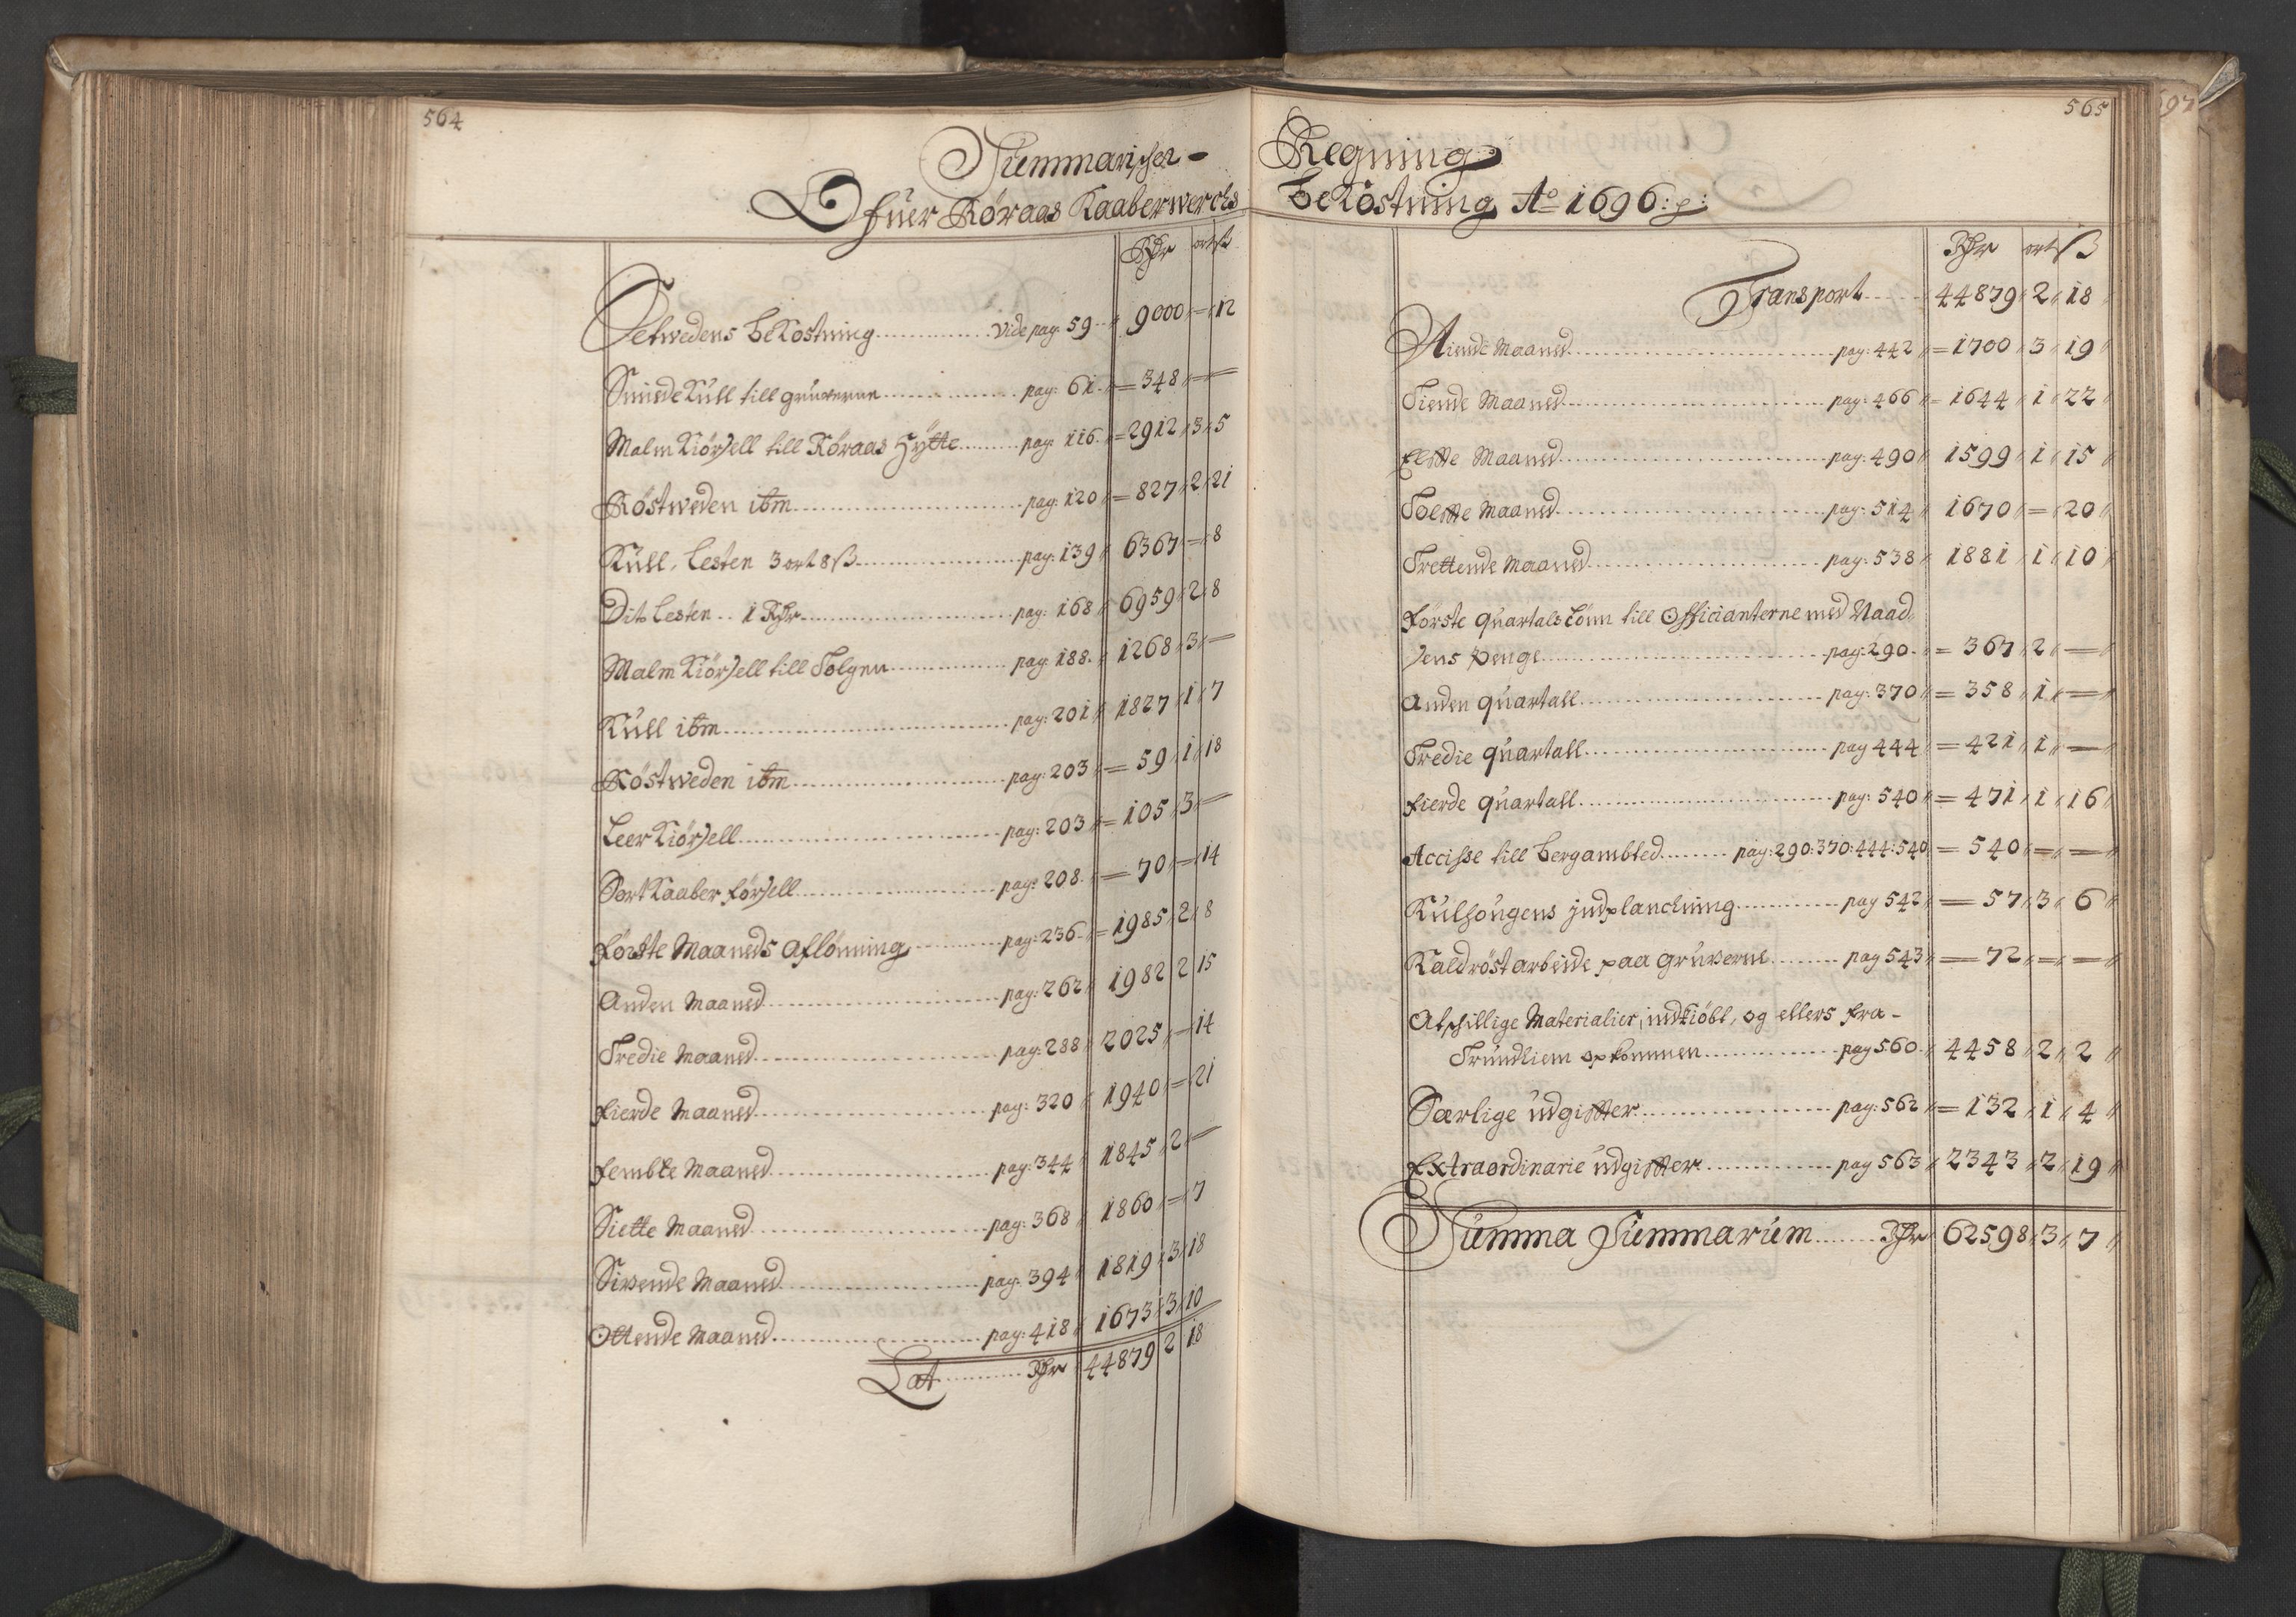 564
Summarischer -
Ofuer Røraas Kaaberwercks
Rdr ort ß
Setwedens bekostning vide pag: 59 9000 - 12
Smidekull till gruverne pag: 61 348 - -
Malm kiørsell till Røraas Hytte pag: 116 2912 3 5
Røstweden itm pag: 120 827 2 21
Kull, Lesten 3 ort 8 ß pag: 139 6367 - 8
Dito Lesten .. 1 Rdr pag: 168 6959 2 8
Malm kiørsell till Tolgen pag: 188 1268 3 -
Kull itm pag: 201 1827 1 7
Røstweden itm pag: 203 59 1 18
Leer kiørsell pag: 203 105 3 -
Sort Kaaber førsell pag: 208 70 - 14
Første Maaneds Aflønning pag: 236 1985 2 8
Anden Maaned pag: 262 1982 2 15
Tredie Maaned pag: 288 2025 - 14
Fierde Maaned pag: 320 1940 - 21
Fembte Maaned pag: 344 1845 2 -
Siette Maaned pag: 368 1860 - 7
Sivende Maaned pag: 394 1819 3 18
Ottende Maaned pag: 418 1673 3 10
Lat Rdr 44879 2 18
565
Regning
bekostning Ao 1696:
Rdr ort ß
Transport 44879 2 18
Niende Maaned pag: 442 1700 3 19
Tiende Maaned pag: 466 1644 1 22
Elffte Maaned pag: 490 1599 1 15
Tolffte Maaned pag: 514 1670 - 20
Trettende Maaned pag: 538 1881 1 10
Første quartals Lønn till Officianterne med Naad
sens penge pag: 290 367 2 -
Anden quartall pag: 370 358 1 -
Tredie quartall pag 444 421 1 -
Fierde quartall pag: 540 471 1 16
Accisse till bergambted pag: 290: 370: 444: 540 540 - -
Kulhougens indplanckning pag 542 57 3 6
Kaldrøst arbeide paa gruverne pag 543 72 - -
Atschillige Materialier, indkiøbt, og ellers fra -
Trundhiem opkommen pag 560 4458 2 2
Særlige udgiffter pag: 562 132 1 4
Extraordinarie udgiffter pag 563 2343 2 19
Summa Summarum Rdr 62598 3 7
597